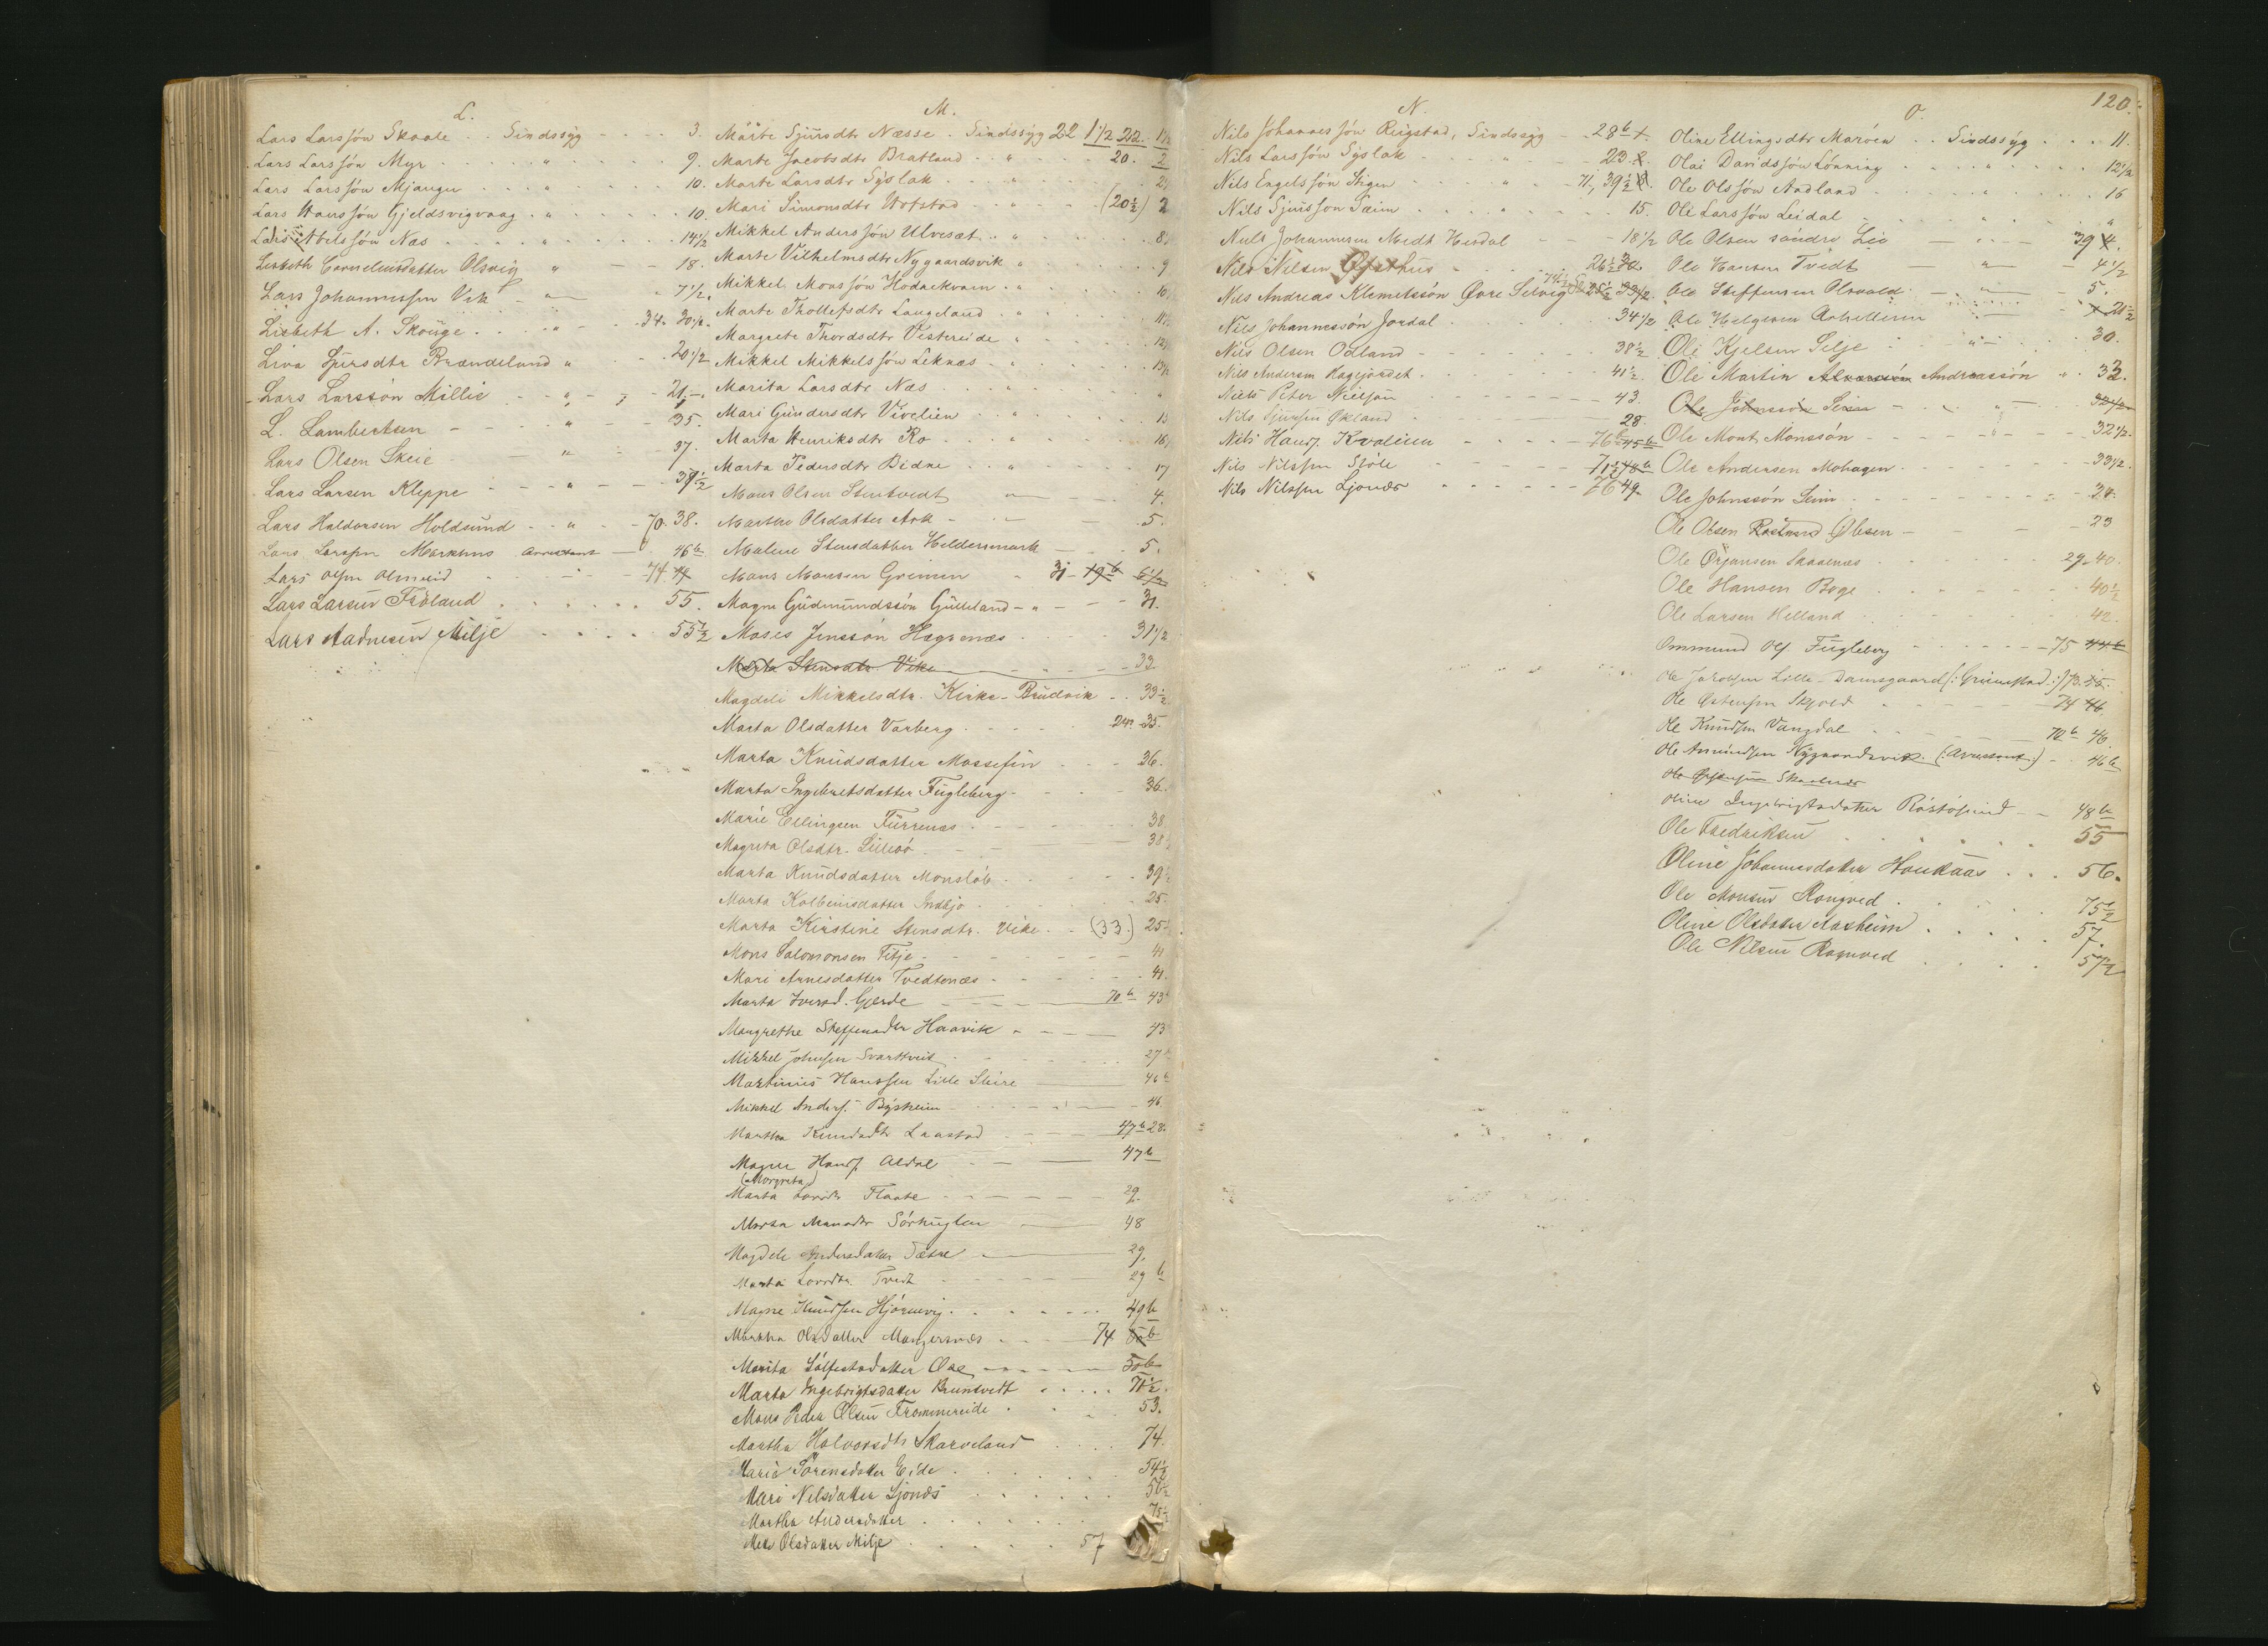 L.
Lars Larssön Skaale . . Sindssyg - - - 3.
Lars Larssön Myr . . . " . . . 9.
Lars Larssön Mjanger . . . " . . . 10.
Lars Hanssön Gjeldsvigvaag . " . . . 10.
Lars Abelssön Næs . . . " . . . 14 1/2
Lisbeth Corneliusdatter Olsvig " — — 18.
Lars Johannessen Vik - " - 7 1/2.
Lisbeth A. Skouge . . . " - 34. 20 1/2.
Liva Sjursdtr Brændeland " - - 20 1/2
Lars Larssön Millie - - " - - 21.
L. Lambertsen - - - " - - 35.
Lars Olsen Skeie - - " - 37.
Lars Larsen Kleppe - - - " - - 37 1/2
Lars Haldorsen Holdsund - - " - - 70. 38.
Lars Larssen Markhus Arrestant — 46 b
Lars Olsen Olmheid - - - 74.
Lars Larsen Fröland . . . . . 55.
Lars Aadnesen Milje . . . . 55 1/2
M.
Märte Sjursdtr Næsse . Sindssyg 22 1 1/2 22.
Marte Jacobsdtr Bratland . . " . . 20. 2
Marte Larsdtr Syslak . . . "
Mari Simonsdtr Hofstad . . " . . (20 1/2) 2
Mikkel Anderssön Ulvesæt . . " . . . 8
Marte Vilhelmsdtr Nygaardsvik " . . . 9
Mikkel Monssön Hodnekvam . " . . . 10
Marte Thollefsdtr Langeland . . " . . .
Margrete Thordsdtr Vestereide "
Mikkel Mikkelssön Leknæs . . "
Marita Larsdtr Næs . . . "
Mari Gundersdtr Vivelien . . " . . . 15
Marta Henriksdtr Ro . . . " . . . 16
Marta Pedersdtr Bidne . . " . . . 17
Mons Olsen Stentvedt " — — 4.
Marthe Olsdatter Ark - — — 5.
Malene Stensdatter Heldersmark — - - 5.
Mons Monsen Grimen " 31 - 19 b 6 1/2
Magne Gudmundssön Gulleland - " - - 31.
Moses Jenssön Hegrenæs . . 31 1/2
Marta Stensdtr Vike - - - 33
Magdeli Mikkelsdtr. Kirke-Brudvik - . 33 1/2
Marta Olsdatter Varberg . . . 24. 35.
Marta Knudsdatter Mossefin - - - 36.
Marta Ingebretsdatter Fugleberg - - - 36.
Marie Ellingsen Furrenes . - - - 38
Magreta Olsdtr. Lilleöö . - - 38
Marta Knudsdatter Monslöb . - - - 39 1/2
Marta Kolbeinsdatter Indbjo . - - 25.
Marta Kirstine Stensdtr. Vike . . (33.) 25
Mons Salomonsen Titje - - - - - 41
Mari Arnesdatter Tvedtenæs - - - - 41.
Marta Iversd. Gjerde - - - - 70 b 43
Margrethe Steffensdtr Haavik - - — 43
Mikkel Johnsen Svartveit - - - 27
Martinus Hanssen Lille Skire — 46 b
Mikkel Anders. Bysheim - - - - 46
Martha Knudsdtr Laastad - - - 47 b 28.
Magne Hansf. Aldal - — — 47 b
(Margreta)
Marta Larsdtr Flaate - - - - - 29.
Marta Monsdtr Sörhuglen — 48
Magdele Andersdatter Sætre — 29.
Marta Larsdtr. Tvedt - - - - 29 b
Magne Knudsen Hjörnevig . - - - - 49 b
Martha Olsdatter Mangersnæs . - - - 74
Marita Sölfestadatter Ose - - - - 50 b
Marta Ingebrigtsdatter Bruntvedt . . . . 71 1/2.
Mons Peder Olsen Frommereide . . . 53.
Martha Halvorsdtr Skarveland . . . . 74.
Marie Sörensdatter Eide . . . . . 54 1/2
Mari Nilsdatter Ljonæs . . . . . 56 1/2
Martha Andersdatter . . . . . . 75 1/2
Mette Olsdatter Milje . . . . . 57
N.
Nils Johannessön Reigstad, Sindssyg - 28 b
Nils Larssön Syslak . . . " . . 23. 8.
Nils Engelssön Stigen - - - " - - 71, 39 1/2
Nils Sjursson Sæim . . . . . 15.
Nils Johannesen Medt Hesdal - - - 18 1/2
Nils Nilsen Østhus - - - 26 1/2 30
Nils Andreas Klemetssön Øvre Selvig 74 1/2 25 1/2 33 1/2.
Nils Johannessön Jordal . - - - 34 1/2
Nils Olsen Odland - - - - - 38 1/2
Nils Andersen Hagejordet . - - - - 41 1/2.
Niels Peter Nielsen - - - - - 43.
Nils Sjursen Økland - - - - 28
Nils Hansf. Kvalien - - - - 76 b 45 b
Nils Nilssen Stöle - - - - 71 1/2 48 b
Nils Nilssen Ljonæs - - - - - 76 49.
120.
O.
Oline Ellingsdtr Maröen . . Sindssyg . . . 11.
Olai Davidssön Lönning . . . " . . . 12 1/2
Ole Olssön Aadland . . . . " . . . 16
Ole Larssön Leidal - . . . " . . . "
Ole Olsen söndre Lie — " — 39 4.
Ole Hansen Tvedt — " — 4 1/2
Ole Steffensen Olsvold . — " — 5.
Ole Helgesen — 21 1/2
Ole Kjelsen Silje . . " — 30.
Ole Martin Andreassön " . 33.
Ole Johnssön Seim - - " — 32 1/2
Ole Mont. Monssön - - - - 32 1/2.
Ole Andersen Mohagen . - - - - 33 1/2.
Ole Johnssön Seim . - - - - - 24.
Ole Olsen Røstesund Olsen - - - - 23
Ole Ørjansen Skaanæs . . . . 29. 40.
Ole Hansen Boge . - - - - - 40 1/2
Ole Larsen Helland . . . . 42.
Ommund Ols. Fugleberg - - - - - - 75 44 b
Ole Jacobsen Lille-Damsgaard (: Grimestad :) 73. 45.
Ole Østensen Skjold - - - - 74 46
Ole Knudsen Vangdal - - - - 70 b 46.
Ole Amundsen Nygaardsvik. (Arrestant.) - . 46 b
Ole Skaaenæs
Oline Ingebrigtsdatter Röstösund - - 48 b
Ole Fredriksen . . . . . 55
Oline Johannesdatter Haukaas . . . 56.
Ole Monsen Rongved . . . . . 75 1/2
Oline Olsdatter Aasheim . . . . . 57.
Ole Nilsen Rognved . . . . 57 1/2